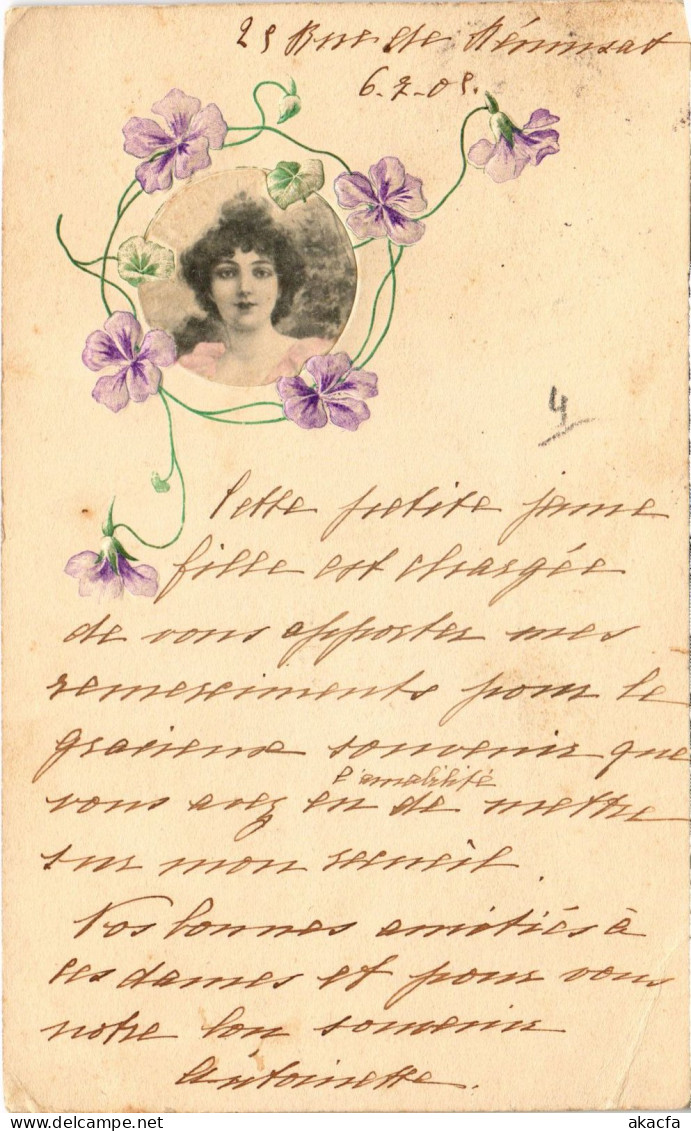 25 Rue de Rémusat
6-2-05.
4
Cette petite jeune
fille est chargée
de vous apporter mes
remerciments pour le
gracieux souvenir que
l'amabilité
vous avez eu de mettre
sur mon recueil.
Nos bonnes amitiés à
ces dames et pour vous
notre bon souvenir
Antoinette.
akacfa
delcampe.net